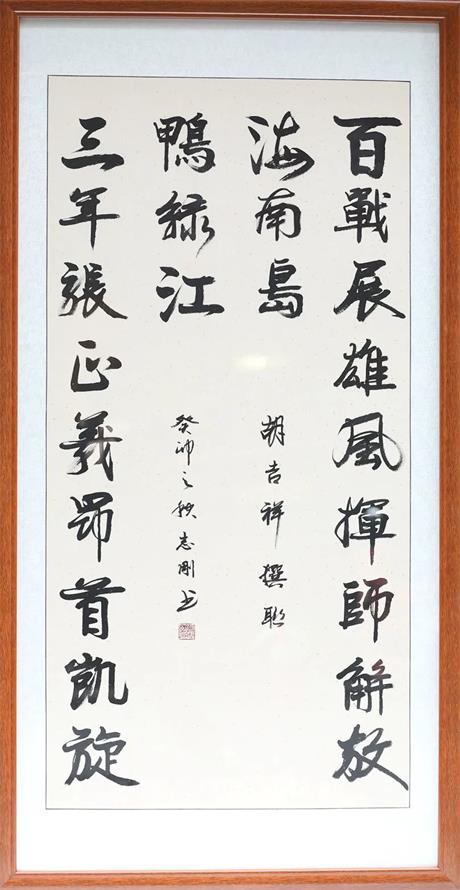 百戰展雄風揮師解放
海南島
胡吉祥撰聯
三年張正義昂首凱旋
鴨綠江
癸卯之秋志剛书